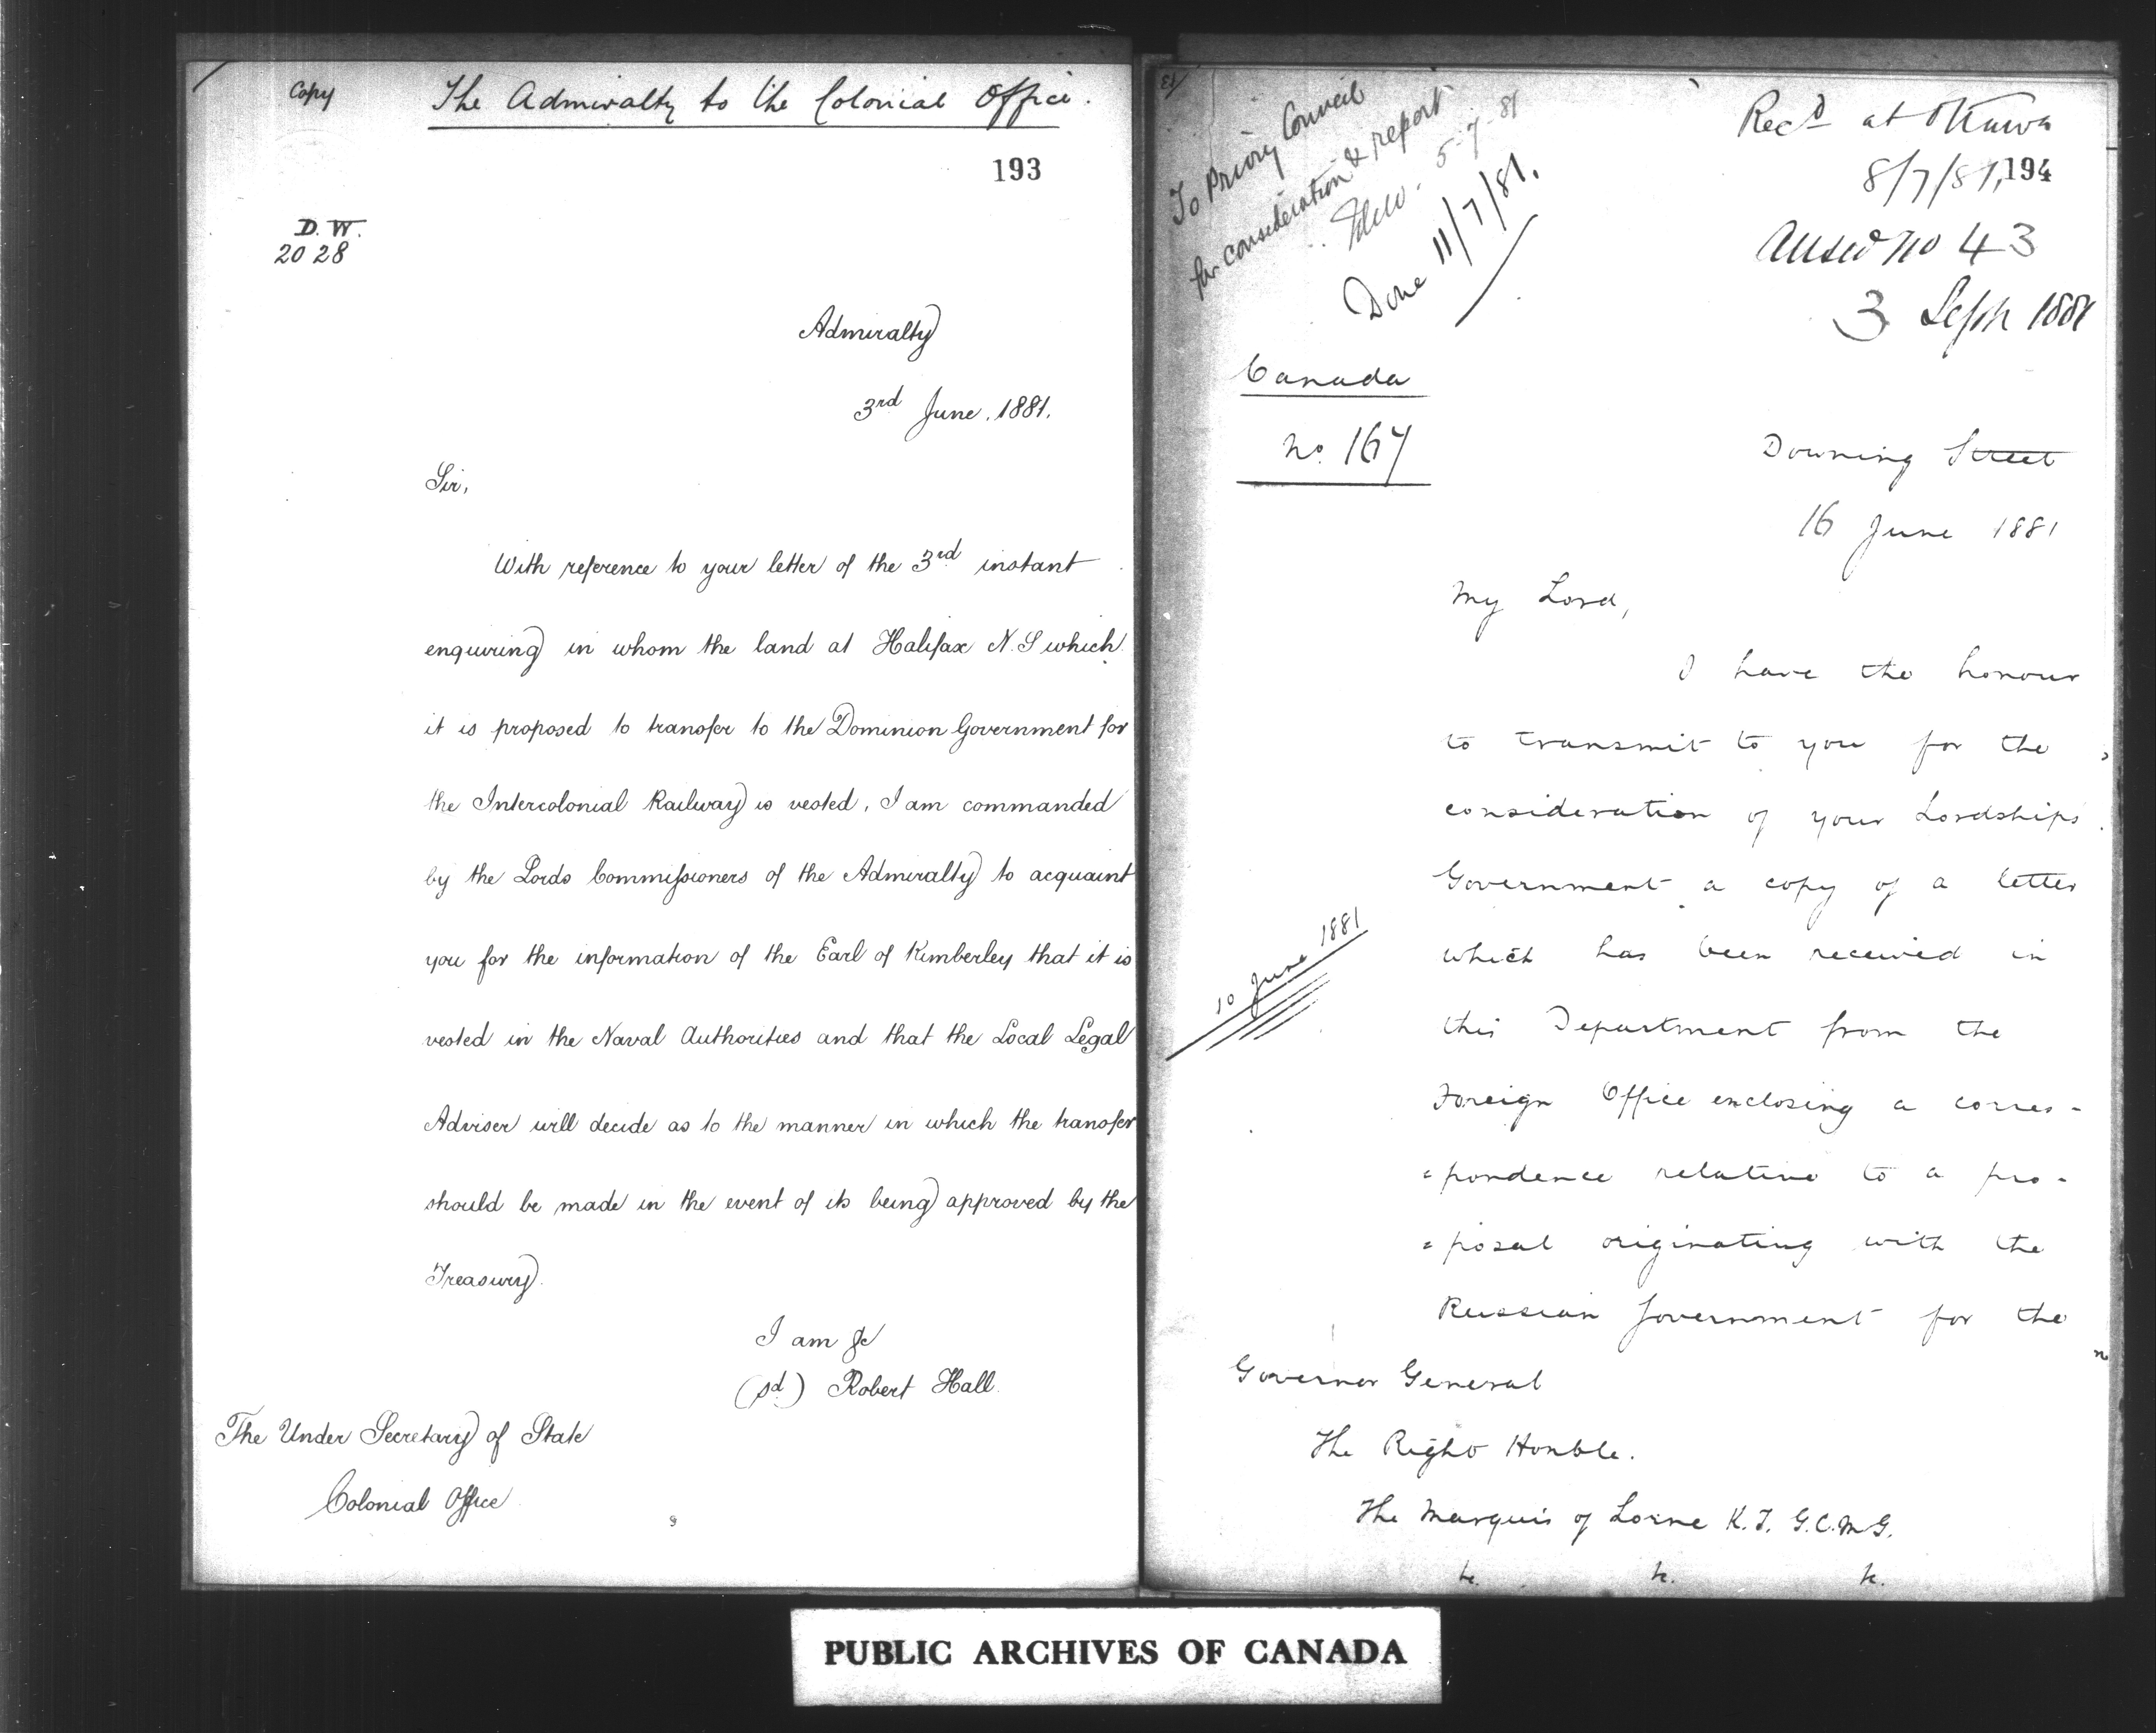 Copy
The Admiralty to the Colonial Office.
193
D. W.
2028
Admiralty
3rd June. 1881.
Sir,
With reference to your letter of the 3rd instant
enquiring in whom the land at Halifax N.S which
it is proposed to transfer to the Dominion Government for
the Intercolonial Railway is vested, I am commanded
by the Lords Commissioners of the Admiralty to acquaint
you for the information of the Earl of Kimberley that it is
vested in the Naval Authorities and that the Local Legal
Adviser will decide as to the manner in which the transfer
should be made in the event of its being approved by the
Treasury.
I am &c
(sd) Robert Hall
The Under Secretary of State
Colonial Office
To Privy Council
for consideration & report
5-7-81
Done 11/7/81.
Recd at Ottawa
8/7/81,
194
Ansed no 43
3 Sept 1881
Canada
No. 167
Downing Street
16 June 1881
My Lord,
I have the honour
to transmit to you for the
consideration of your Lordships
Government a copy of a letter
10 June 1881
which has been received in
this Department from the
Foreign Office enclosing a corres-
=pondence relative to a pro-
=posal originating with the
Russian Government for the
Governor General
The Right Honble.
The Marquis of Lorne K.T. G.C.M.G.
&c. &c. &c.
PUBLIC ARCHIVES OF CANADA